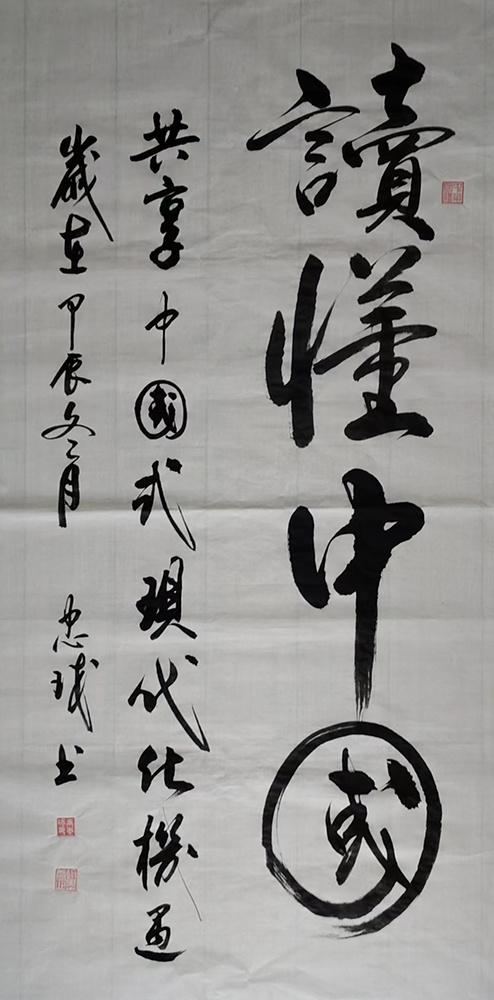 讀懂中國
共享中國式現代化機遇
歲在甲辰冬月 忠珹書